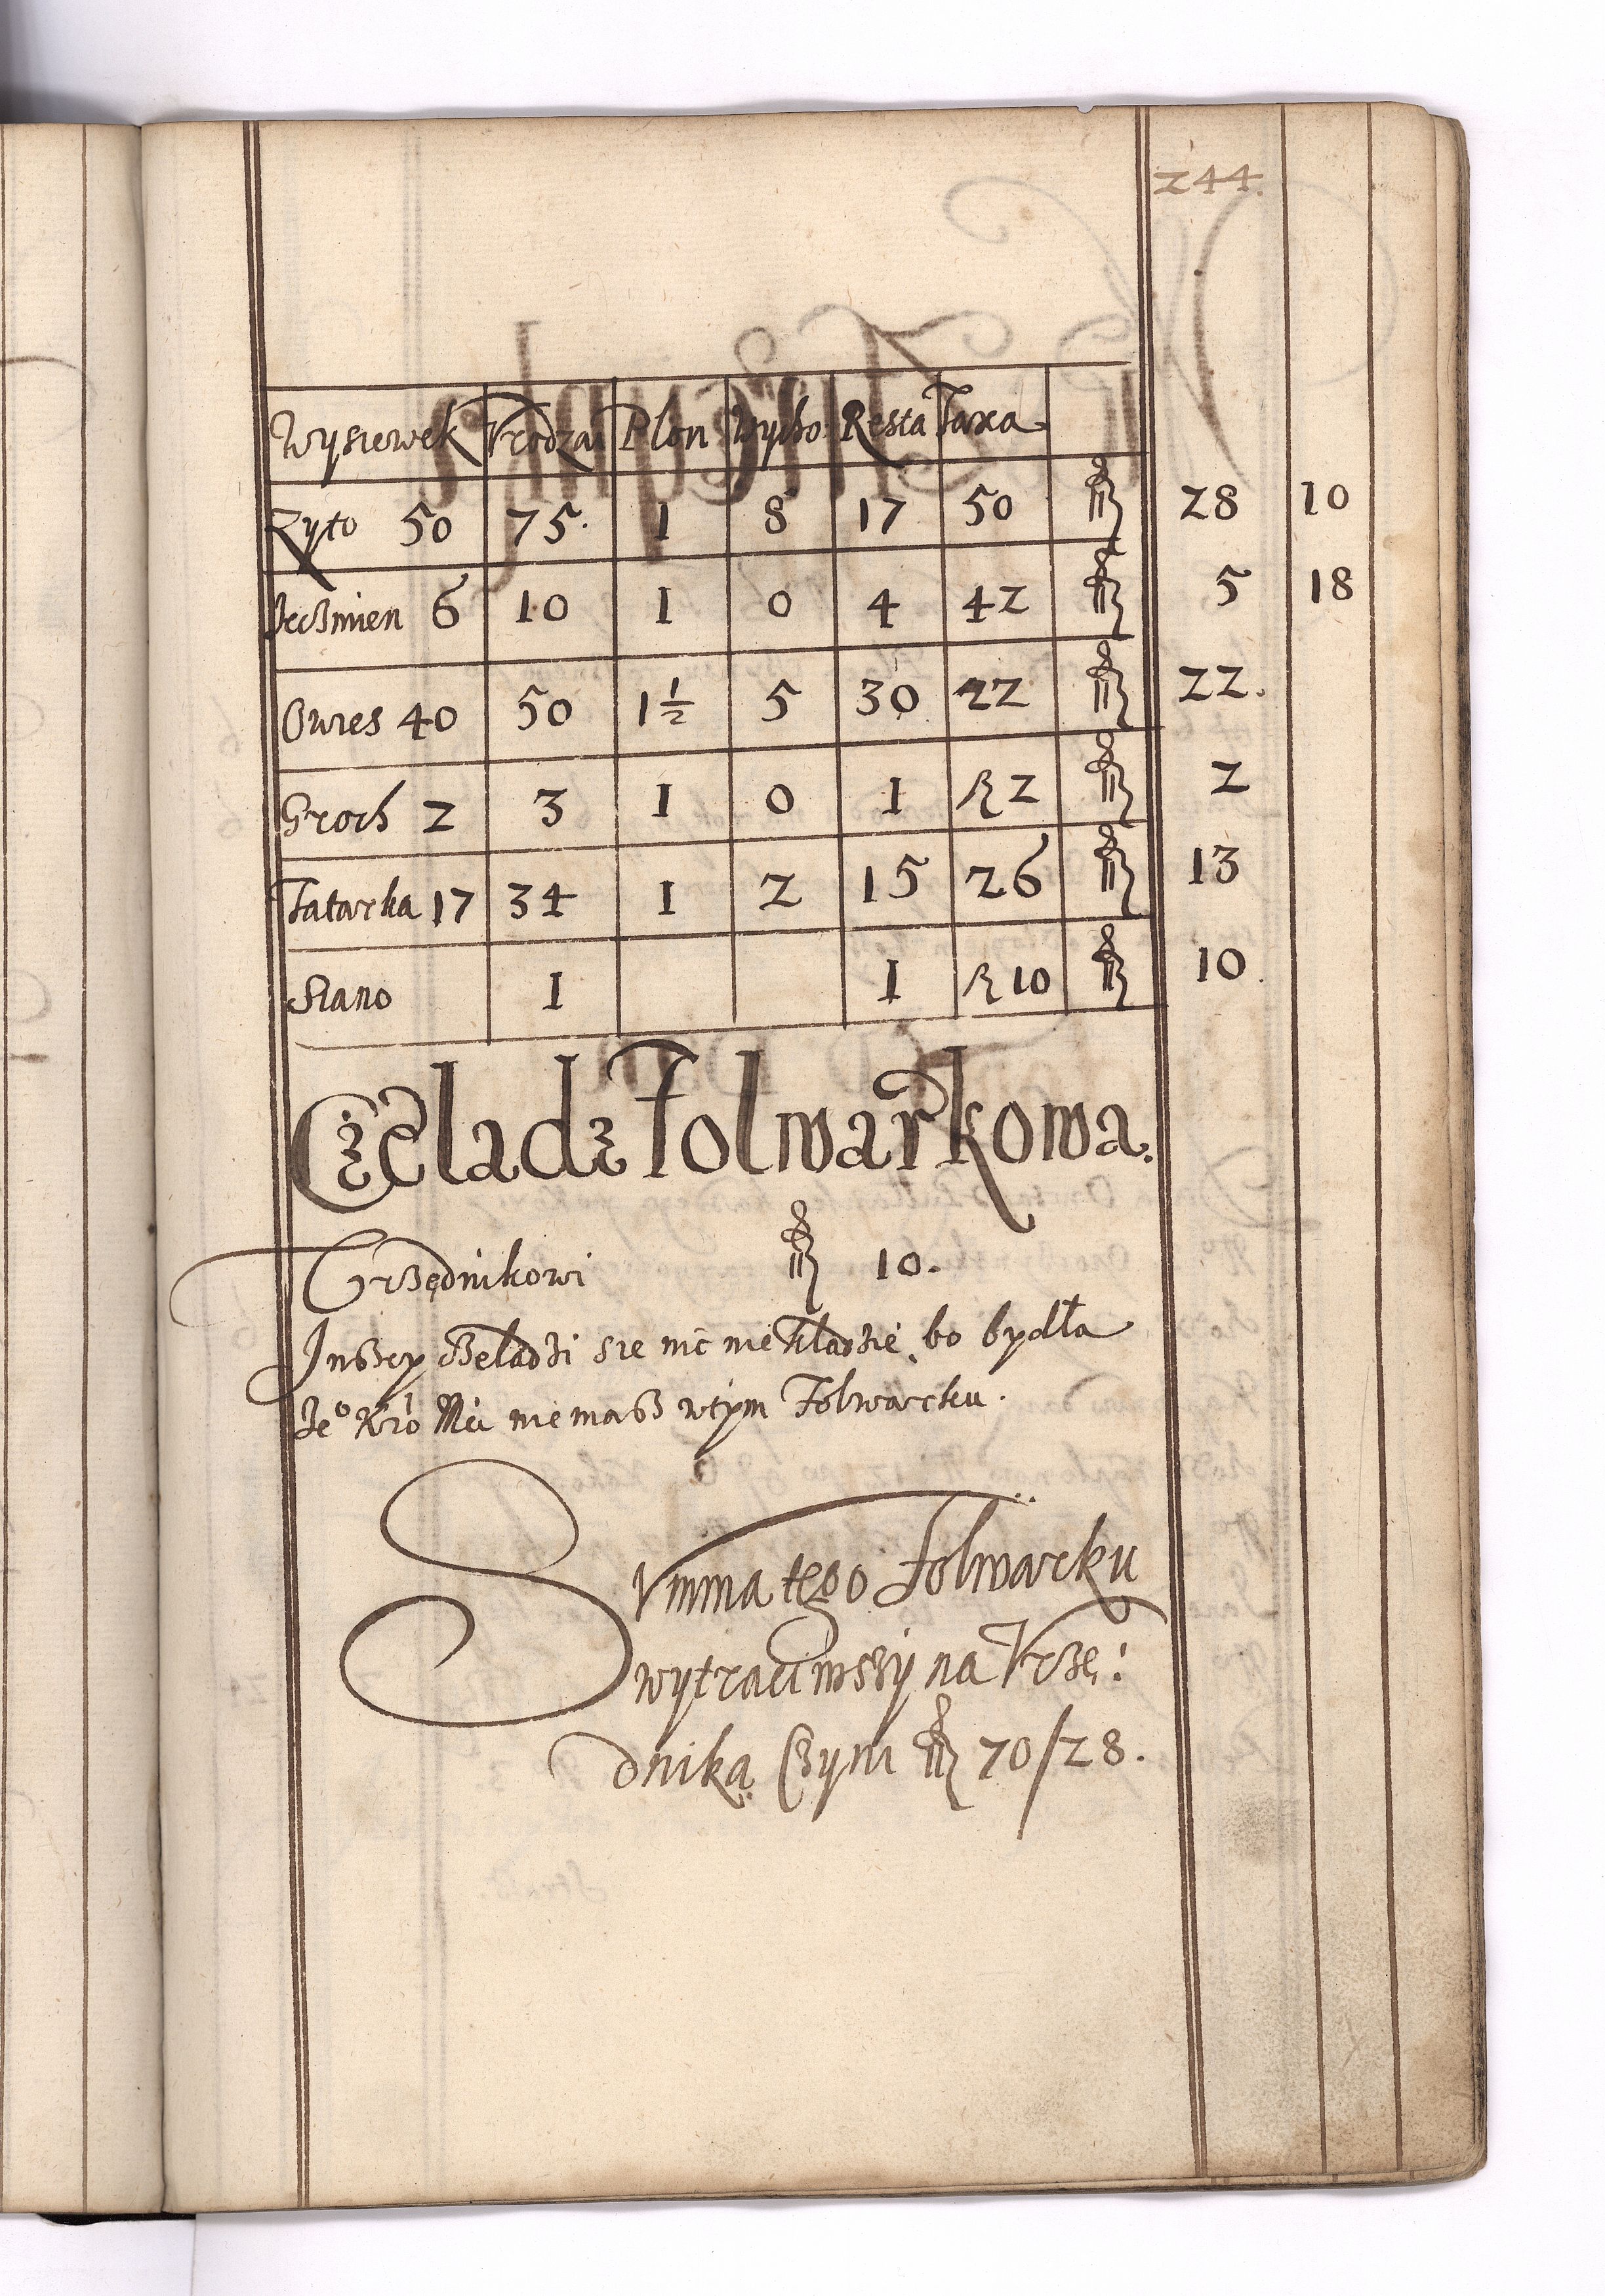 244.
Wysiewek Vrodzai Plon Wycho: Resta Taxa
Zyto 50 75. 1 8 17 50 fl 28 10
Jeczmien 6 10 1 0 4 42 fl 5 18
Owies 40 50 1½ 5 30 22 fl 22.
Groch 2 3 1 0 1 fl 2 fl 2
Tatarka 17 34 1 2 15 26 fl 13
Siano 1 1 fl 10 fl 10.
Czeladz Folwarkowa.
Vrzędnikowi fl 10.
Inszey Czeladzi sie nic nie kładzie, bo bydła
Je° Kro Mci niemasz wtym Folwarcku.
Summa tego Folwarcku
wytraciwszy na Vrzę:
dnika Czyni fl 70/28.